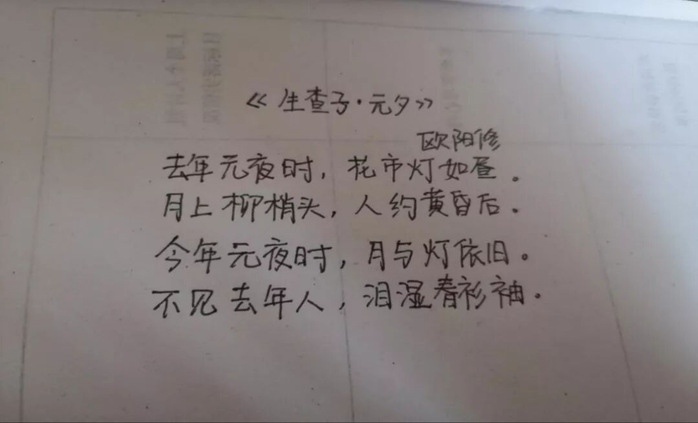 《生查子·元夕》
欧阳修
去年元夜时，花市灯如昼。
月上柳梢头，人约黄昏后。
今年元夜时，月与灯依旧。
不见去年人，泪湿春衫袖。